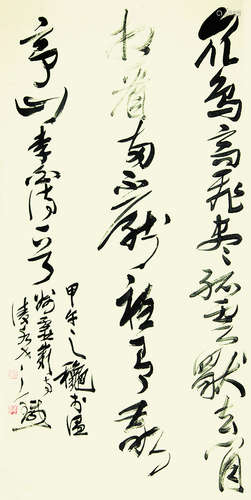 众鸟高飞尽孤云独去闲
相看两不厌祇有敬
亭山李白诗一首
甲午之秋于温
州